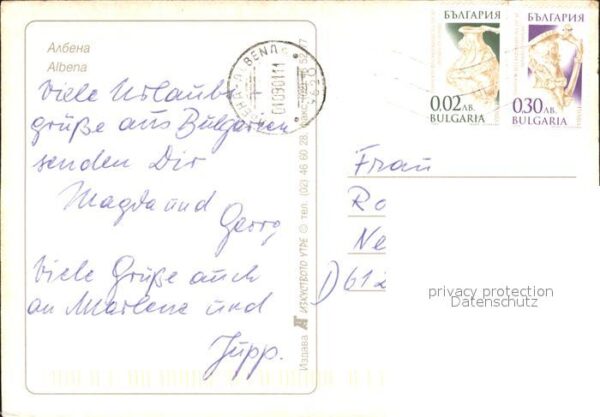 Албена
Albena
Viele Urlaubs-
grüße aus Bulgarien
senden Dir
Magda und
Georg
Viele Grüße auch
an Marlene und
Jupp.
Издава ИЗКУСТВОТО УТРЕ © тел. (02) 46 60 28
ALBENA
010901
БЪЛГАРИЯ
0.02 лв.
BULGARIA
БЪЛГАРИЯ
0.30 лв.
BULGARIA
Frau
Ro
Ne
D 612
privacy protection
Datenschutz